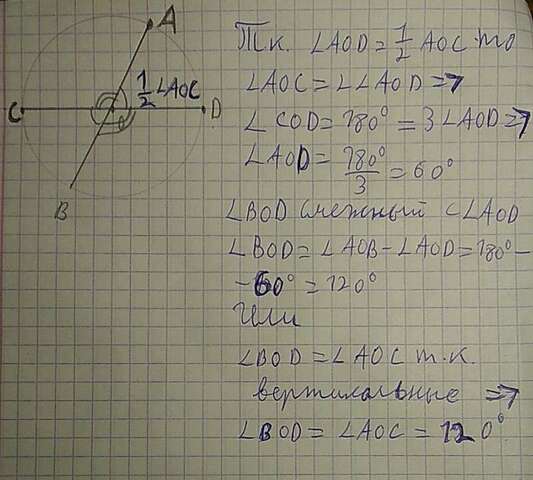 A
1/2 ∠AOC
C
D
B
Т.к. ∠AOD = 1/2 AOC то
∠AOC = ∠∠AOD ⇒
∠COD = 180° = 3∠AOD ⇒
∠AOD = 180°/3 = 60°
∠BOD смежный с ∠AOD
∠BOD = ∠AOB - ∠AOD = 180° -
- 60° = 120°
Или
∠BOD = ∠AOC т.к.
вертикальные ⇒
∠BOD = ∠AOC = 120°